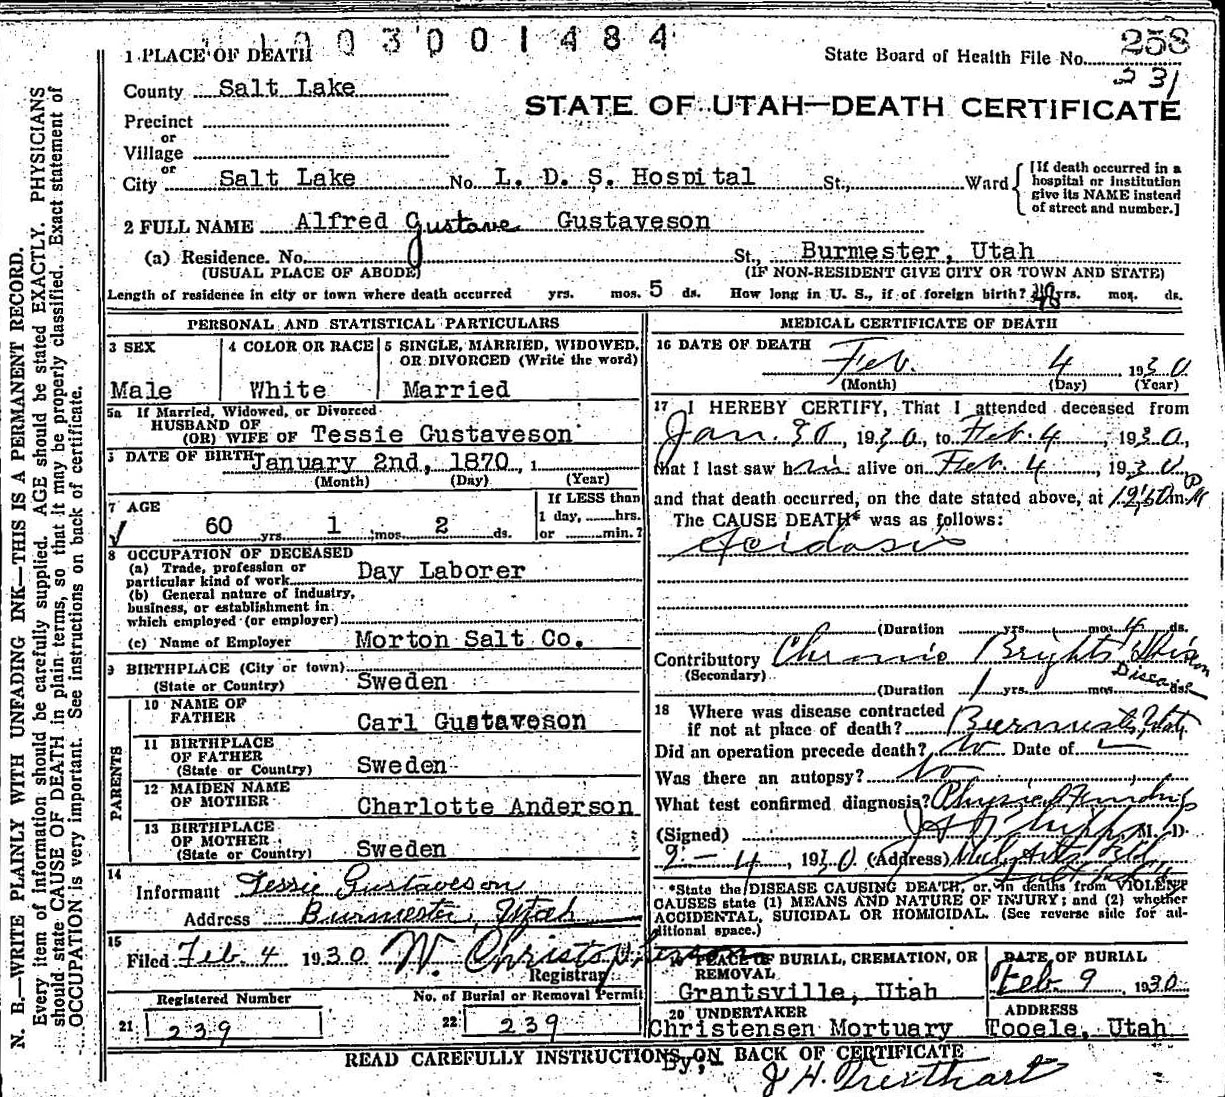 1003001484
1 PLACE OF DEATH
State Board of Health File No. 258
231
County Salt Lake
STATE OF UTAH—DEATH CERTIFICATE
Precinct
or
Village
or
City Salt Lake No. L. D. S. Hospital St., Ward [If death occurred in a hospital or institution give its NAME instead of street and number.]
2 FULL NAME Alfred Gustave Gustaveson
(a) Residence. No. St., Burmester, Utah
(USUAL PLACE OF ABODE) (IF NON-RESIDENT GIVE CITY OR TOWN AND STATE)
Length of residence in city or town where death occurred yrs. mos. 5 ds. How long in U. S., if of foreign birth? 48 yrs. mos. ds.
PERSONAL AND STATISTICAL PARTICULARS
3 SEX 4 COLOR OR RACE 5 SINGLE, MARRIED, WIDOWED, OR DIVORCED (Write the word)
Male White Married
5a If Married, Widowed, or Divorced
HUSBAND OF
(OR) WIFE OF Tessie Gustaveson
DATE OF BIRTH January 2nd, 1870, 1
(Month) (Day) (Year)
7 AGE If LESS than
60 yrs. 1 mos. 2 ds. 1 day, hrs.
or min.?
8 OCCUPATION OF DECEASED
(a) Trade, profession or
particular kind of work Day Laborer
(b) General nature of industry,
business, or establishment in
which employed (or employer)
(c) Name of Employer Morton Salt Co.
9 BIRTHPLACE (City or town)
(State or Country) Sweden
PARENTS
10 NAME OF
FATHER Carl Gustaveson
11 BIRTHPLACE
OF FATHER
(State or Country) Sweden
12 MAIDEN NAME
OF MOTHER Charlotte Anderson
13 BIRTHPLACE
OF MOTHER
(State or Country) Sweden
14
Informant Tessie Gustaveson
Address Burmester, Utah
15
Filed Feb. 4 1930 W. Christopherson
Registrar
Registered Number No. of Burial or Removal Permit
21 239 22 239
MEDICAL CERTIFICATE OF DEATH
16 DATE OF DEATH
Feb. 4 1930
(Month) (Day) (Year)
17 I HEREBY CERTIFY, That I attended deceased from
Jan. 30, 1930, to Feb. 4, 1930,
that I last saw him alive on Feb. 4, 1930
and that death occurred, on the date stated above, at 12:50 m. PM
The CAUSE DEATH* was as follows:
Acidosis
(Duration yrs. mos. 4 ds.
Contributory Chronic Brights
(Secondary) Disease
(Duration 1 yrs. mos. ds.
18 Where was disease contracted
if not at place of death? Burmester, Utah
Did an operation precede death? No Date of
Was there an autopsy? No
What test confirmed diagnosis? Physical Findings
(Signed) M. D.
2-4, 1930 (Address) Med. Arts Bld.
Salt Lake
*State the DISEASE CAUSING DEATH, or, in deaths from VIOLENT
CAUSES state (1) MEANS AND NATURE OF INJURY; and (2) whether
ACCIDENTAL, SUICIDAL OR HOMICIDAL. (See reverse side for ad-
ditional space.)
19 PLACE OF BURIAL, CREMATION, OR DATE OF BURIAL
REMOVAL
Grantsville, Utah Feb. 9 1930
20 UNDERTAKER ADDRESS
Christensen Mortuary Tooele, Utah
READ CAREFULLY INSTRUCTIONS ON BACK OF CERTIFICATE
By,
N. B.—WRITE PLAINLY WITH UNFADING INK—THIS IS A PERMANENT RECORD.
Every item of information should be carefully supplied. AGE should be stated EXACTLY. PHYSICIANS
should state CAUSE OF DEATH in plain terms, so that it may be properly classified. Exact statement of
OCCUPATION is very important. See instructions on back of certificate.